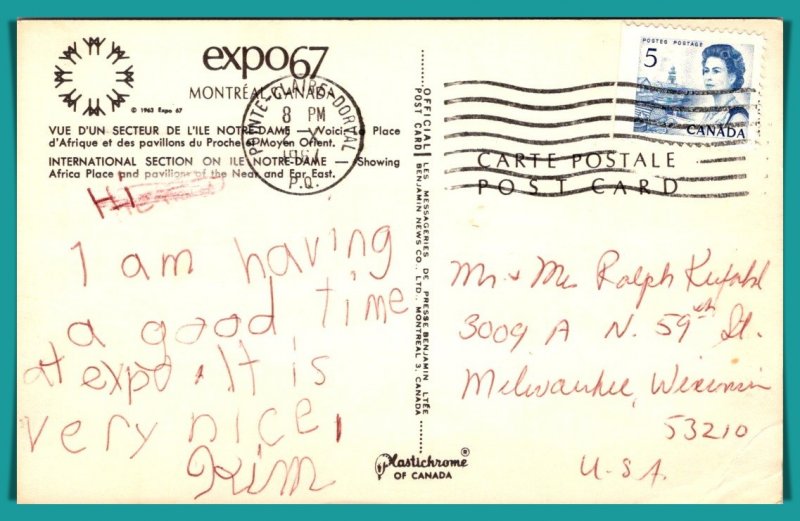 expo67
MONTRÉAL, CANADA
© 1963 Expo 67
VUE D'UN SECTEUR DE L'ILE NOTRE-DAME — Voici la Place
d'Afrique et des pavillons du Proche et Moyen Orient.
INTERNATIONAL SECTION ON ILE NOTRE-DAME — Showing
Africa Place and pavilions of the Near and Far East.
I am having
a good time
at expo. It is
very nice,
Kim
POINTE-CLAIRE-DORVAL
8 PM
P.Q.
OFFICIAL POST CARD
LES MESSAGERIES DE PRESSE BENJAMIN LTÉE
BENJAMIN NEWS CO., LTD., MONTREAL 3, CANADA
Plastichrome
OF CANADA
POSTES POSTAGE
5
CANADA
CARTE POSTALE
POST CARD
Mr & Mrs Ralph
3009 A N. 59th St.
Milwaukee, Wisconsin
53210
U.S.A.